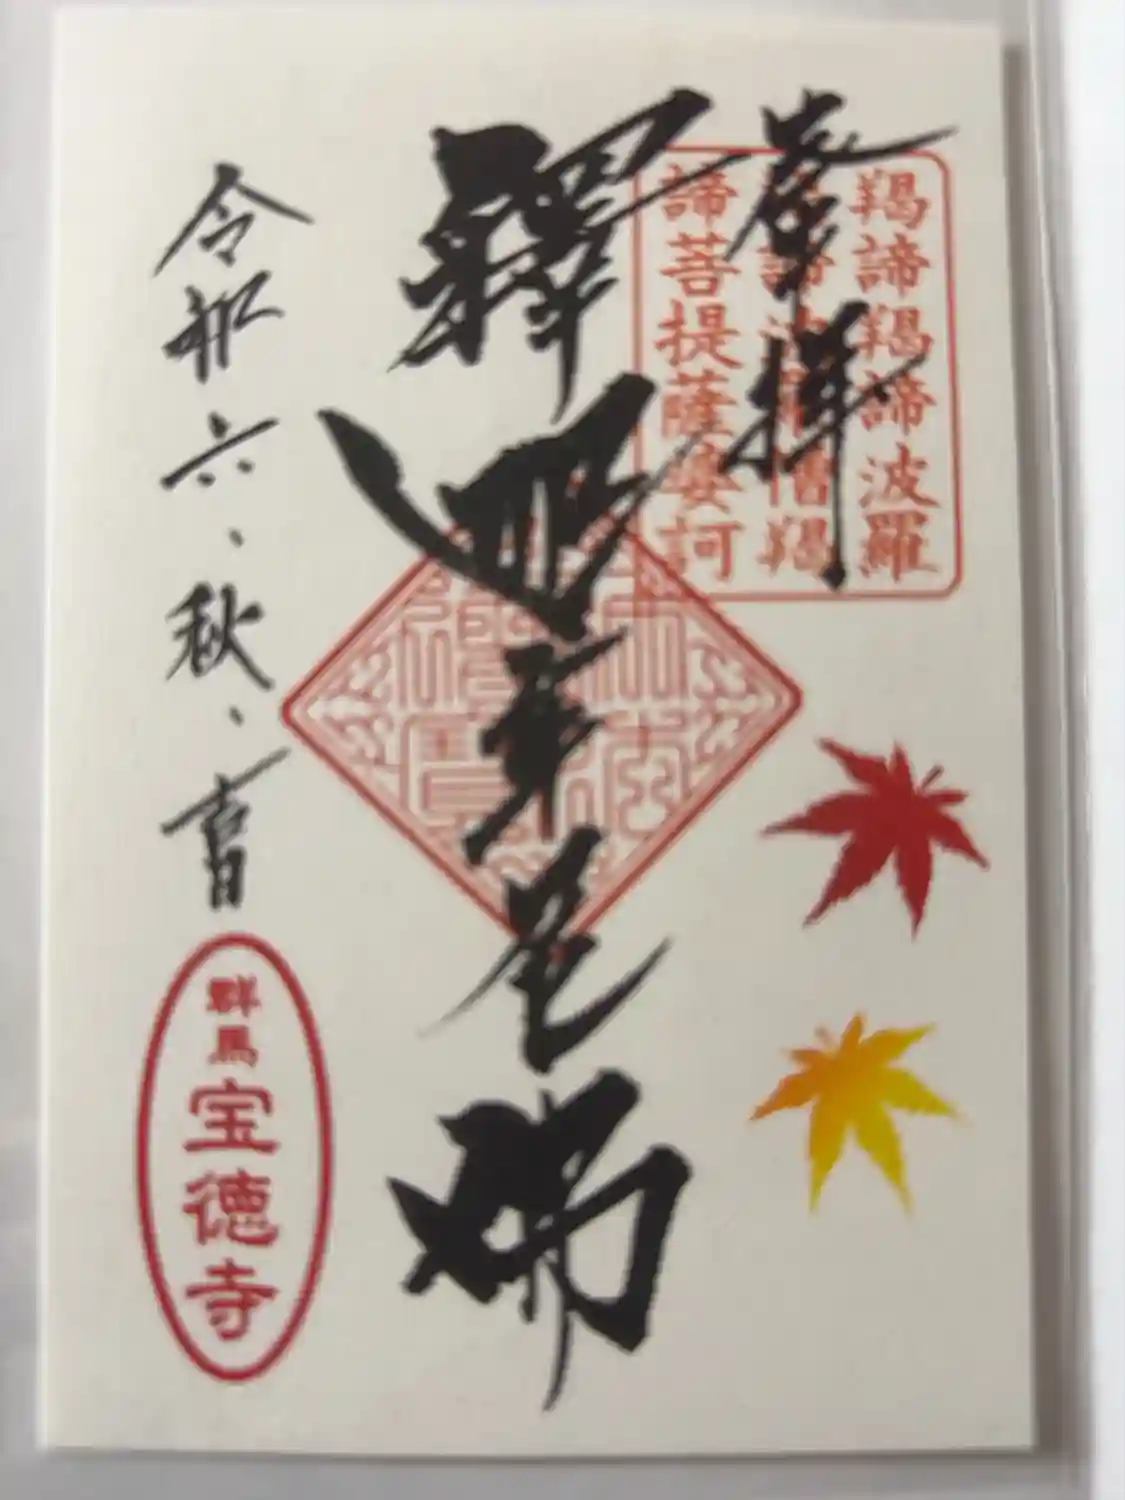 奉拝
羯諦羯諦波羅
羯諦波羅僧羯
諦菩提薩婆訶
釋迦牟尼佛
令和六、秋、吉日
群馬
宝徳寺